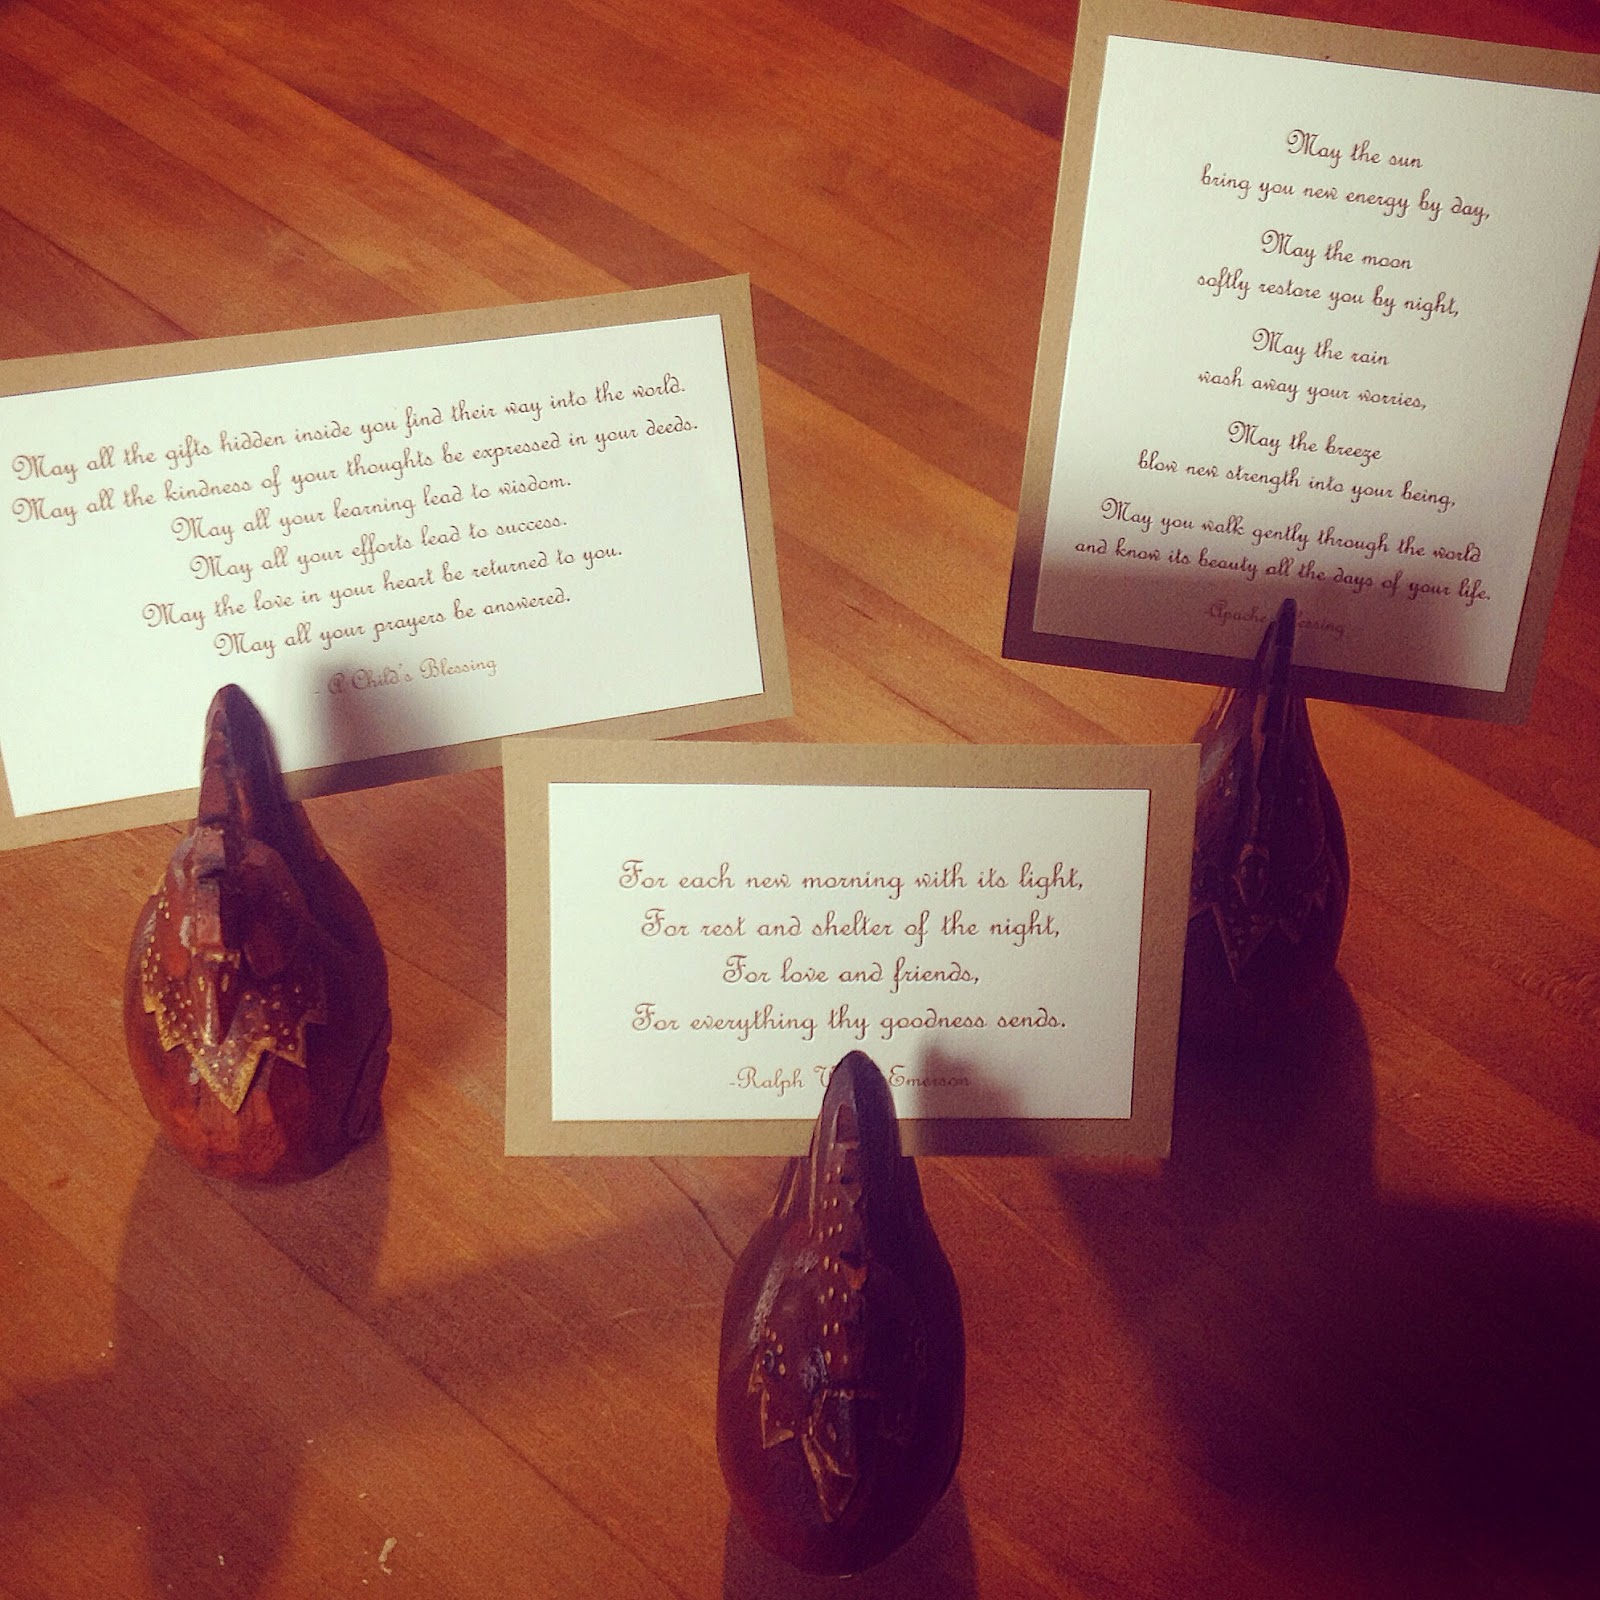 May all the gifts hidden inside you find their way into the world.
May all the kindness of your thoughts be expressed in your deeds.
May all your learning lead to wisdom.
May all your efforts lead to success.
May the love in your heart be returned to you.
May all your prayers be answered.
- A Child's Blessing
May the sun
bring you new energy by day,
May the moon
softly restore you by night,
May the rain
wash away your worries,
May the breeze
blow new strength into your being,
May you walk gently through the world
and know its beauty all the days of your life.
-Apache Blessing
For each new morning with its light,
For rest and shelter of the night,
For love and friends,
For everything thy goodness sends.
-Ralph Emerson